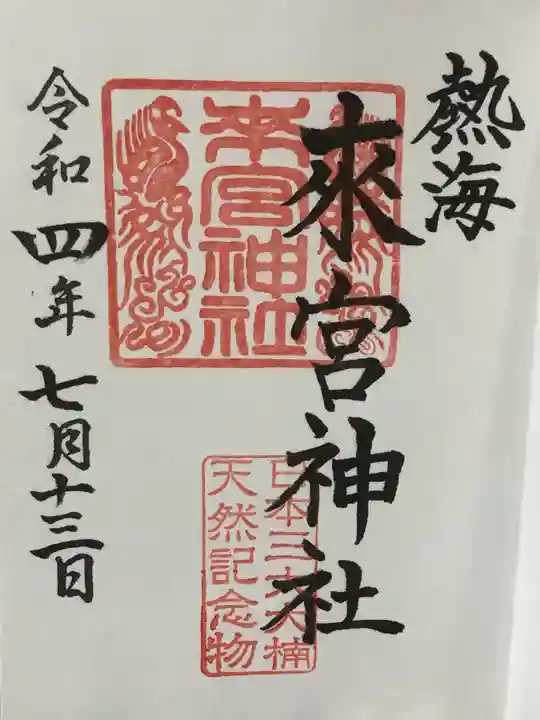 熱海
來宮神社
來宮神社
日本三大大楠
天然記念物
令和四年七月十三日